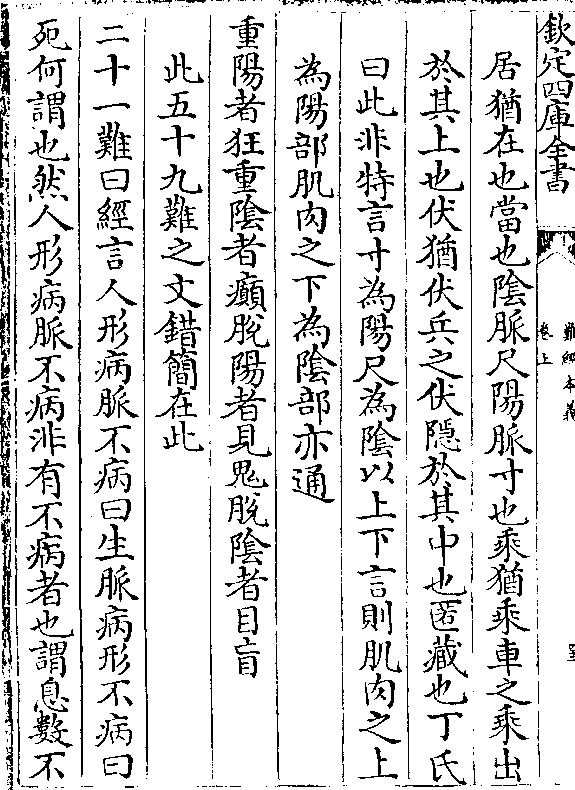 欽定四庫全書
難經本義
卷上
居猶在也當也陰脈尺陽脈寸也乘猶乘車之乘出
於其上也伏猶伏兵之伏隱於其中也匿藏也丁氏
曰此非特言寸為陽尺為陰以上下言則肌肉之上
為陽部肌肉之下為陰部亦通
重陽者狂重陰者癲脫陽者見鬼脫陰者目盲
此五十九難之文錯簡在此
二十一難曰經言人形病脈不病曰生脈病形不病曰
死何謂也然人形病脈不病非有不病者也謂息數不